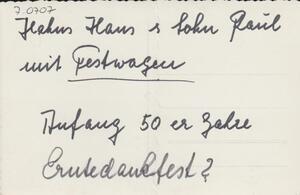 7-0707
Hahns Hans & Sohn Paul
mit Festwagen
Anfang 50 er Jahre
Erntedankfest?